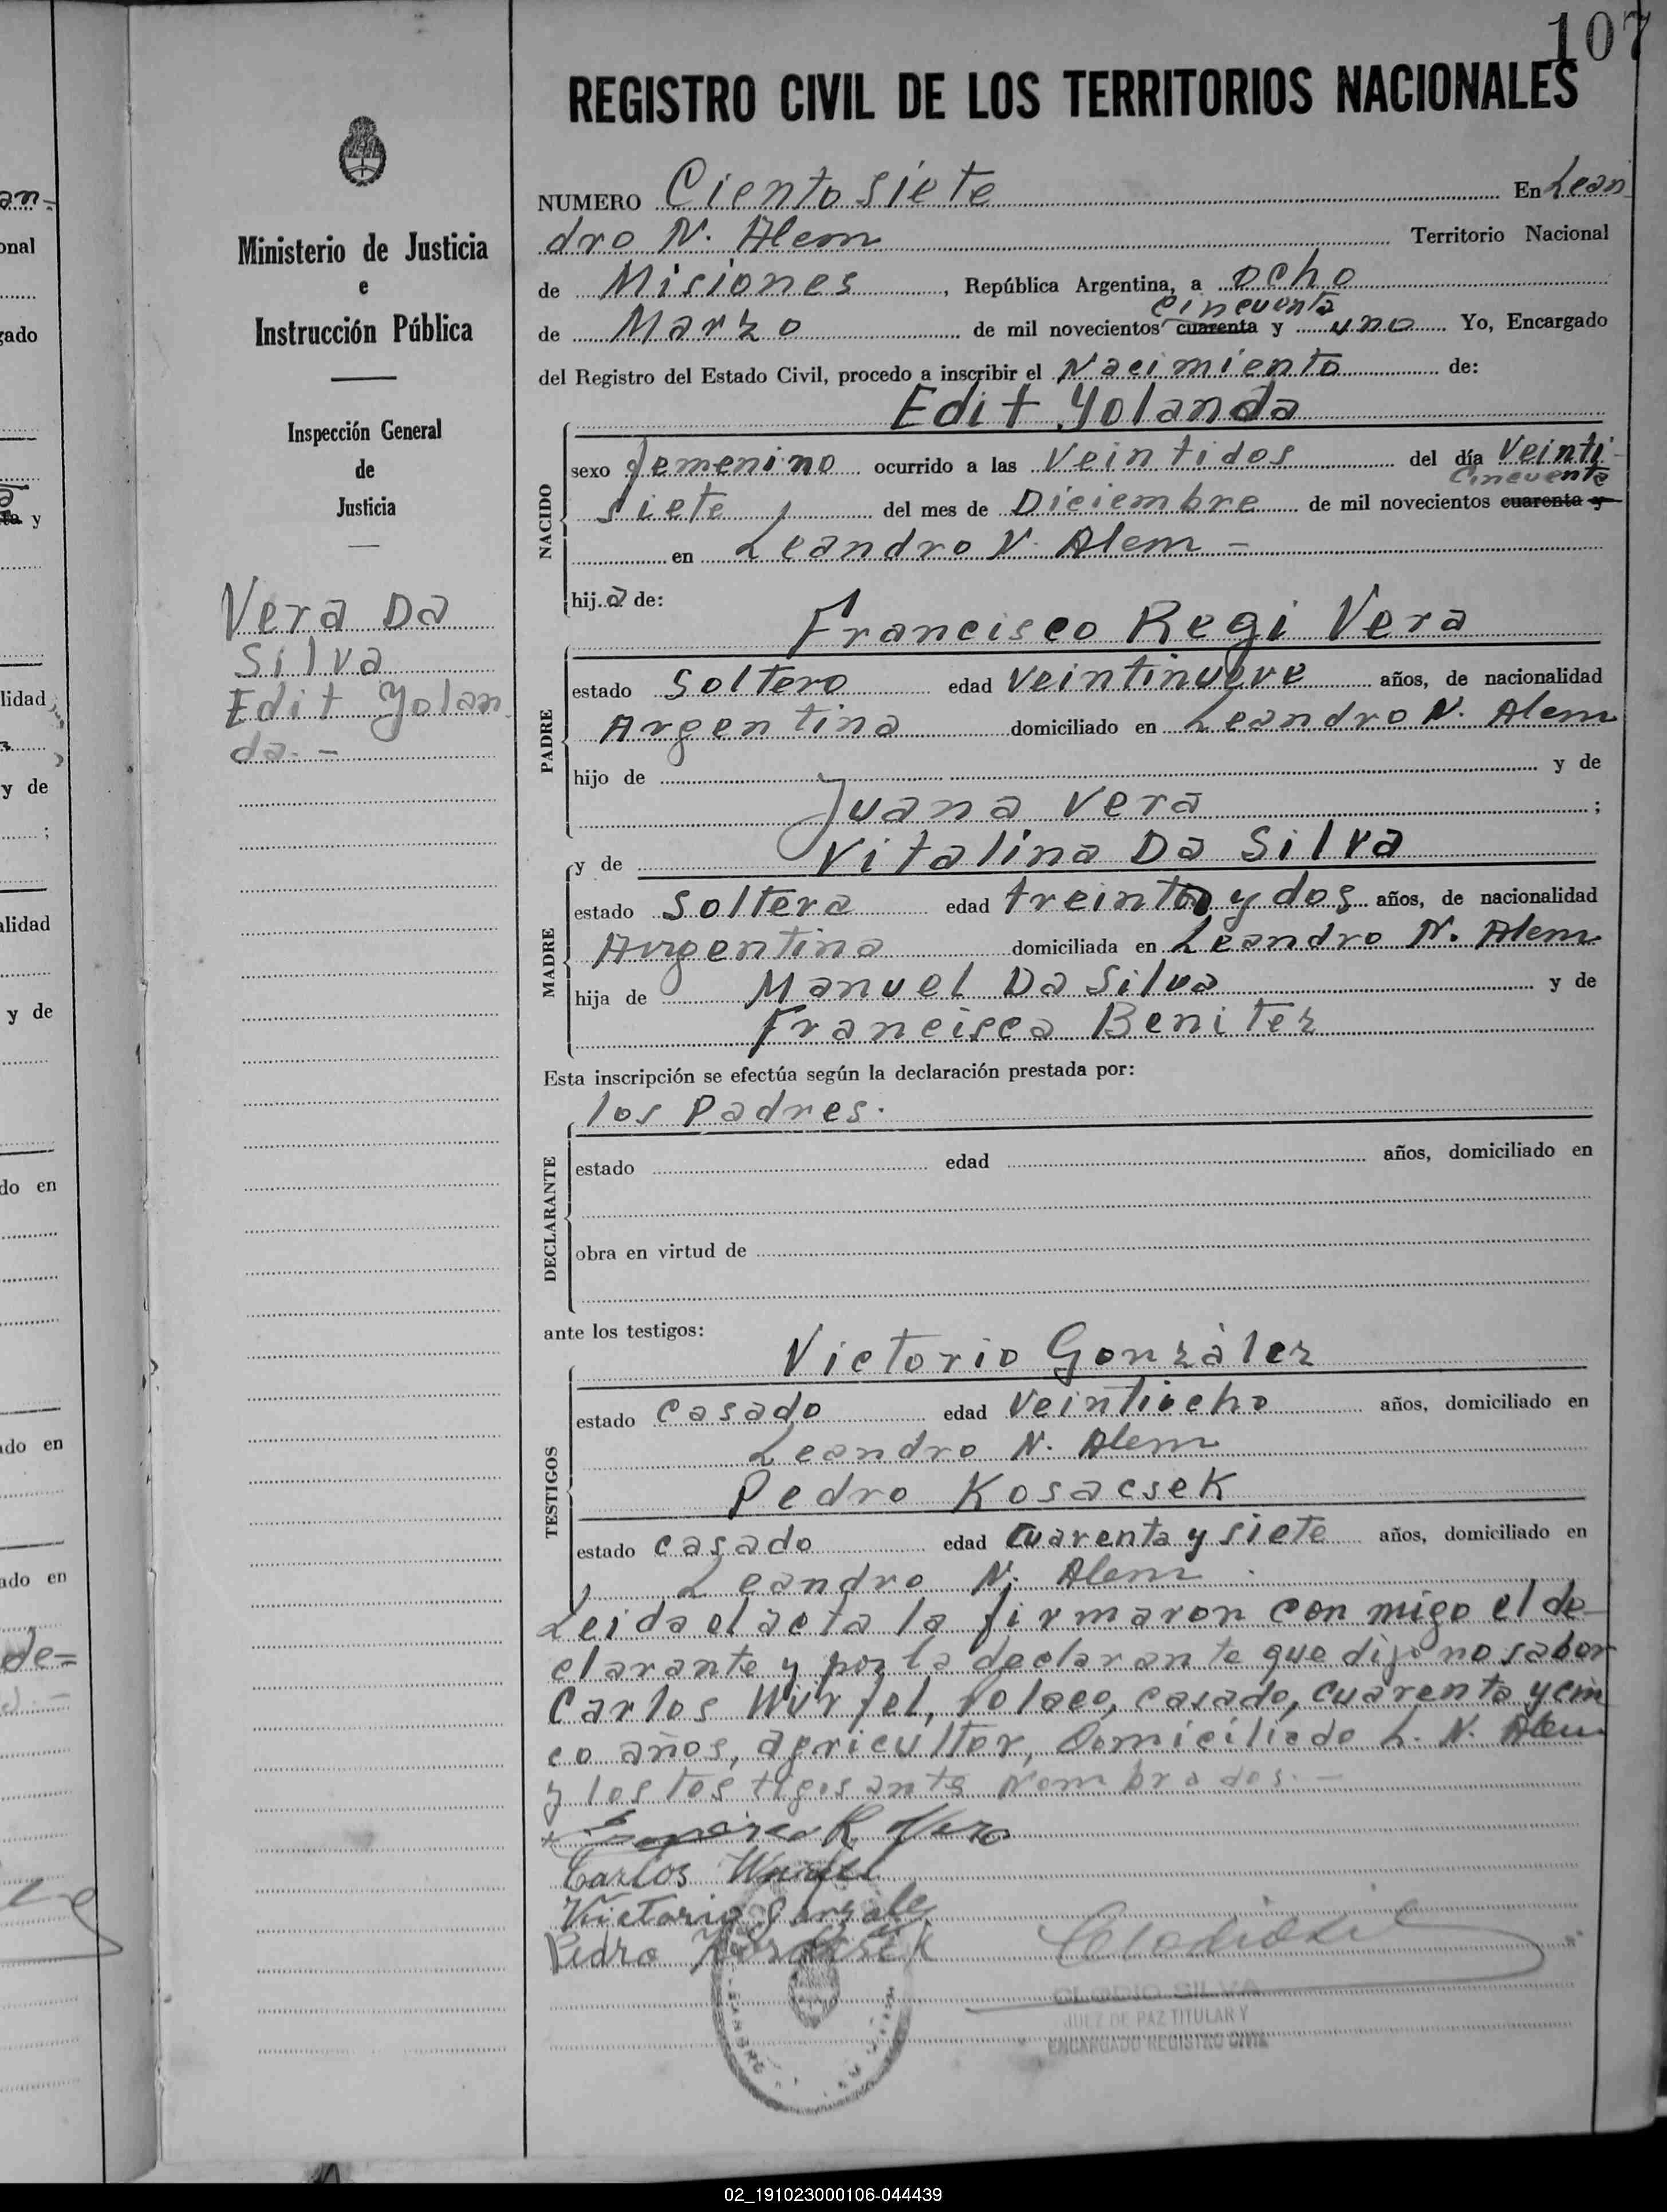 107
REGISTRO CIVIL DE LOS TERRITORIOS NACIONALES
Ministerio de Justicia
e
Instrucción Pública
Inspección General
de
Justicia
Vera Da
Silva
Edit Yolan
da. -
NUMERO Ciento siete En Lean
dro N. Alem Territorio Nacional
de Misiones, República Argentina, a ocho
cincuenta
de Marzo de mil novecientos cuarenta y uno Yo, Encargado
del Registro del Estado Civil, procedo a inscribir el Nacimiento de:
Edit Yolanda
NACIDO
sexo femenino ocurrido a las Veintidos del día Veinti-
Cincuenta
siete, del mes de Diciembre de mil novecientos cuarenta y
en Leandro N. Alem -
hija de:
Francisco Regi Vera
PADRE
estado Soltero edad Veintinueve años, de nacionalidad
Argentina domiciliado en Leandro N. Alem
hijo de y de
Juana Vera ;
y de Vitalina Da Silva
MADRE
estado Soltera edad treinta y dos años, de nacionalidad
Argentina domiciliada en Leandro N. Alem
hija de Manuel Da Silva y de
Francisca Benitez
Esta inscripción se efectúa según la declaración prestada por:
los Padres.
DECLARANTE
estado edad años, domiciliado en
obra en virtud de
ante los testigos:
Victorio Gonzàlez
TESTIGOS
estado Casado edad Veintiocho años, domiciliado en
Leandro N. Alem
Pedro Kosacsek
estado Casado edad Cuarenta y siete años, domiciliado en
Leandro N. Alem.
Leida el acta la firmaron con migo el de-
clarante y por la declarante que dijo no saber
Carlos Würfel, Polaco, casado, cuarenta y cin
co años, agricultor, Domiciliado L. N. Alem
y los testigos ante Nombrados. -
R. Vera
Carlos Würfel
Victorio Gonzalez
Pedro Kosacsek
CLODIO SILVA
JUEZ DE PAZ TITULAR Y
ENCARGADO REGISTRO CIVIL
an-
onal
gado
y
lidad
y de
;
alidad
y de
do en
ado en
ado en
de=
02_191023000106-044439